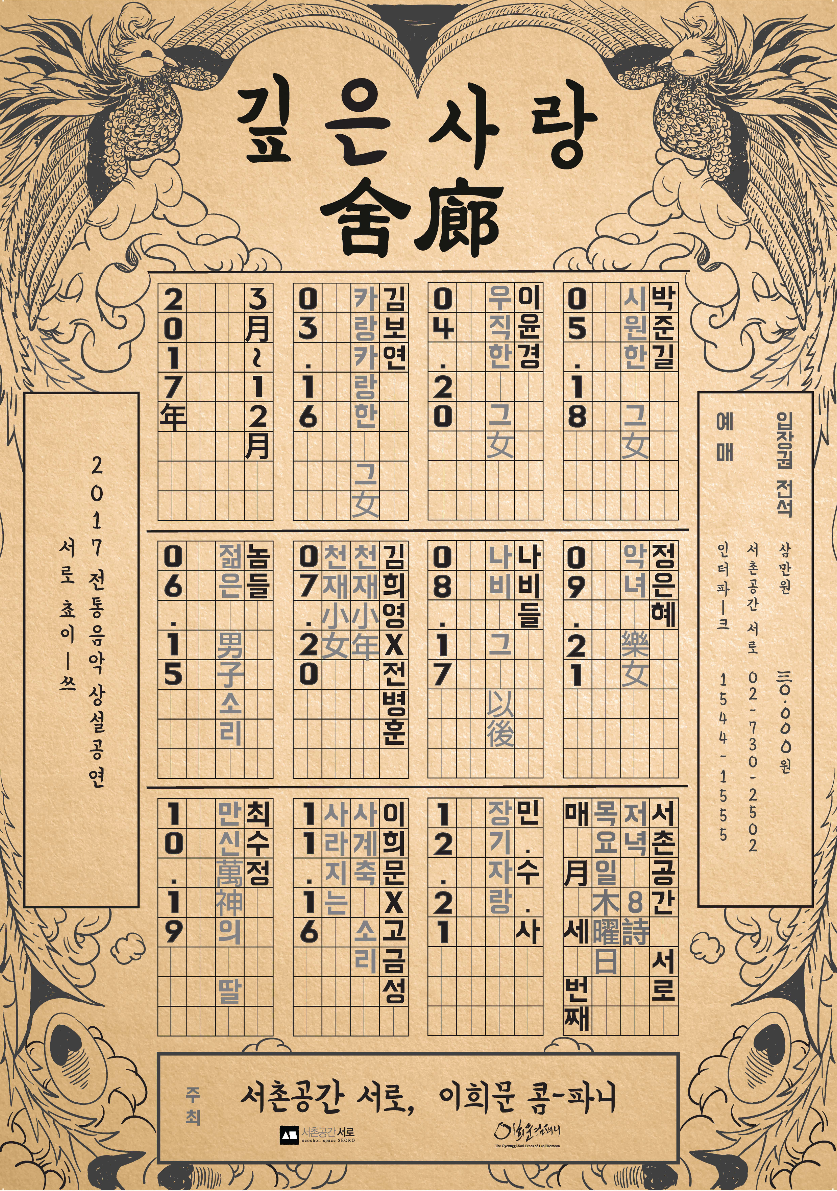 깊은사랑
舍廊
2017年
3月~12月
03.16
카랑카랑한 그女
김보연
04.20
우직한 그女
이윤경
05.18
시원한 그女
박준길
06.15
젊은 男子소리
놈들
07.20
천재小女
천재小年
김희영X전병훈
08.17
나비 그 以後
나비들
09.21
악녀 樂女
정은혜
10.19
만신萬神의 딸
최수정
11.16
사라지는
사계축 소리
이희문X고금성
12.21
장기자랑
민.수.사
서촌공간 서로
저녁 8詩
목요일木曜日
매 月 세 번째
2017 전통음악 상설공연
서로 쵸이ㅡ쓰
입장권 전석 삼만원 三0.000원
예매
서촌공간 서로 02-730-2502
인터파ㅡ크 1544-1555
주최
서촌공간 서로, 이희문 콤-파니
서촌공간 서로
이희문컴퍼니